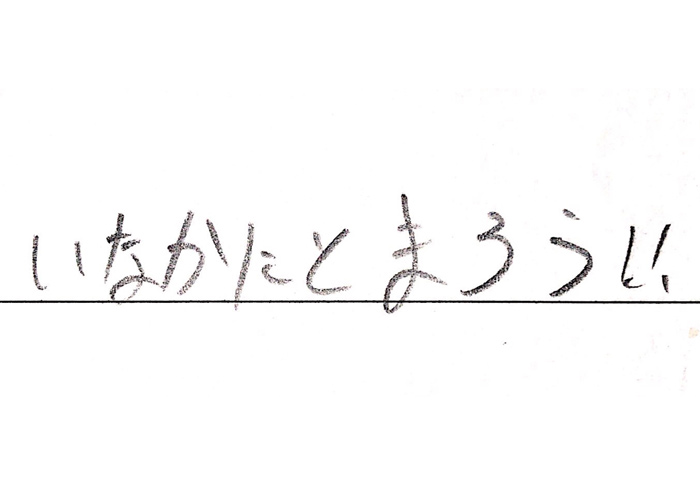 いなかにとまろうい